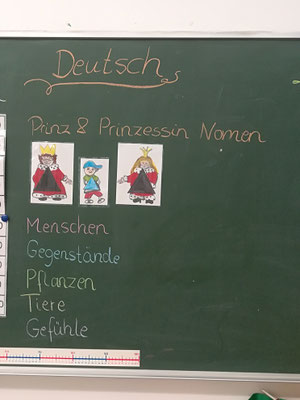 Deutsch
Prinz & Prinzessin Nomen
Menschen
Gegenstände
Pflanzen
Tiere
Gefühle